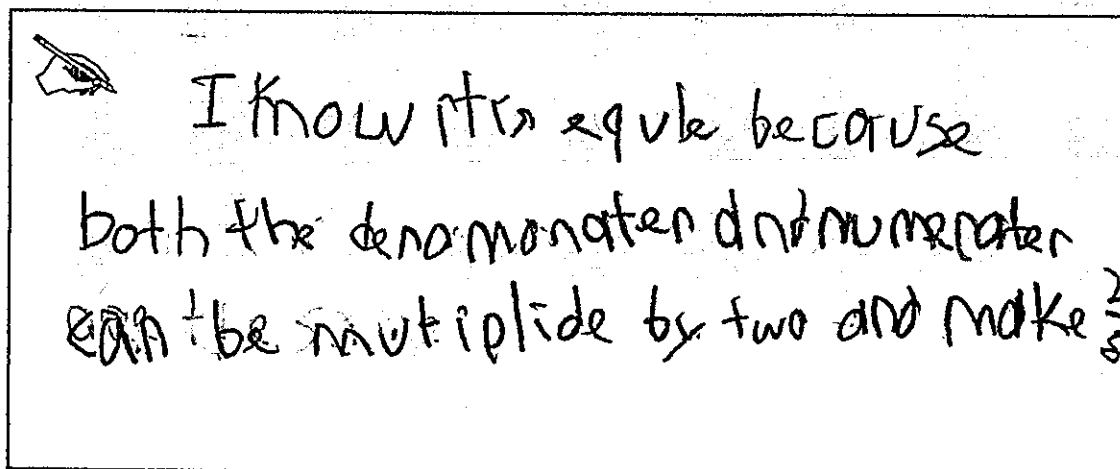 I know it's equle because
both the denomonater and numerater
can be mutiplide by two and make